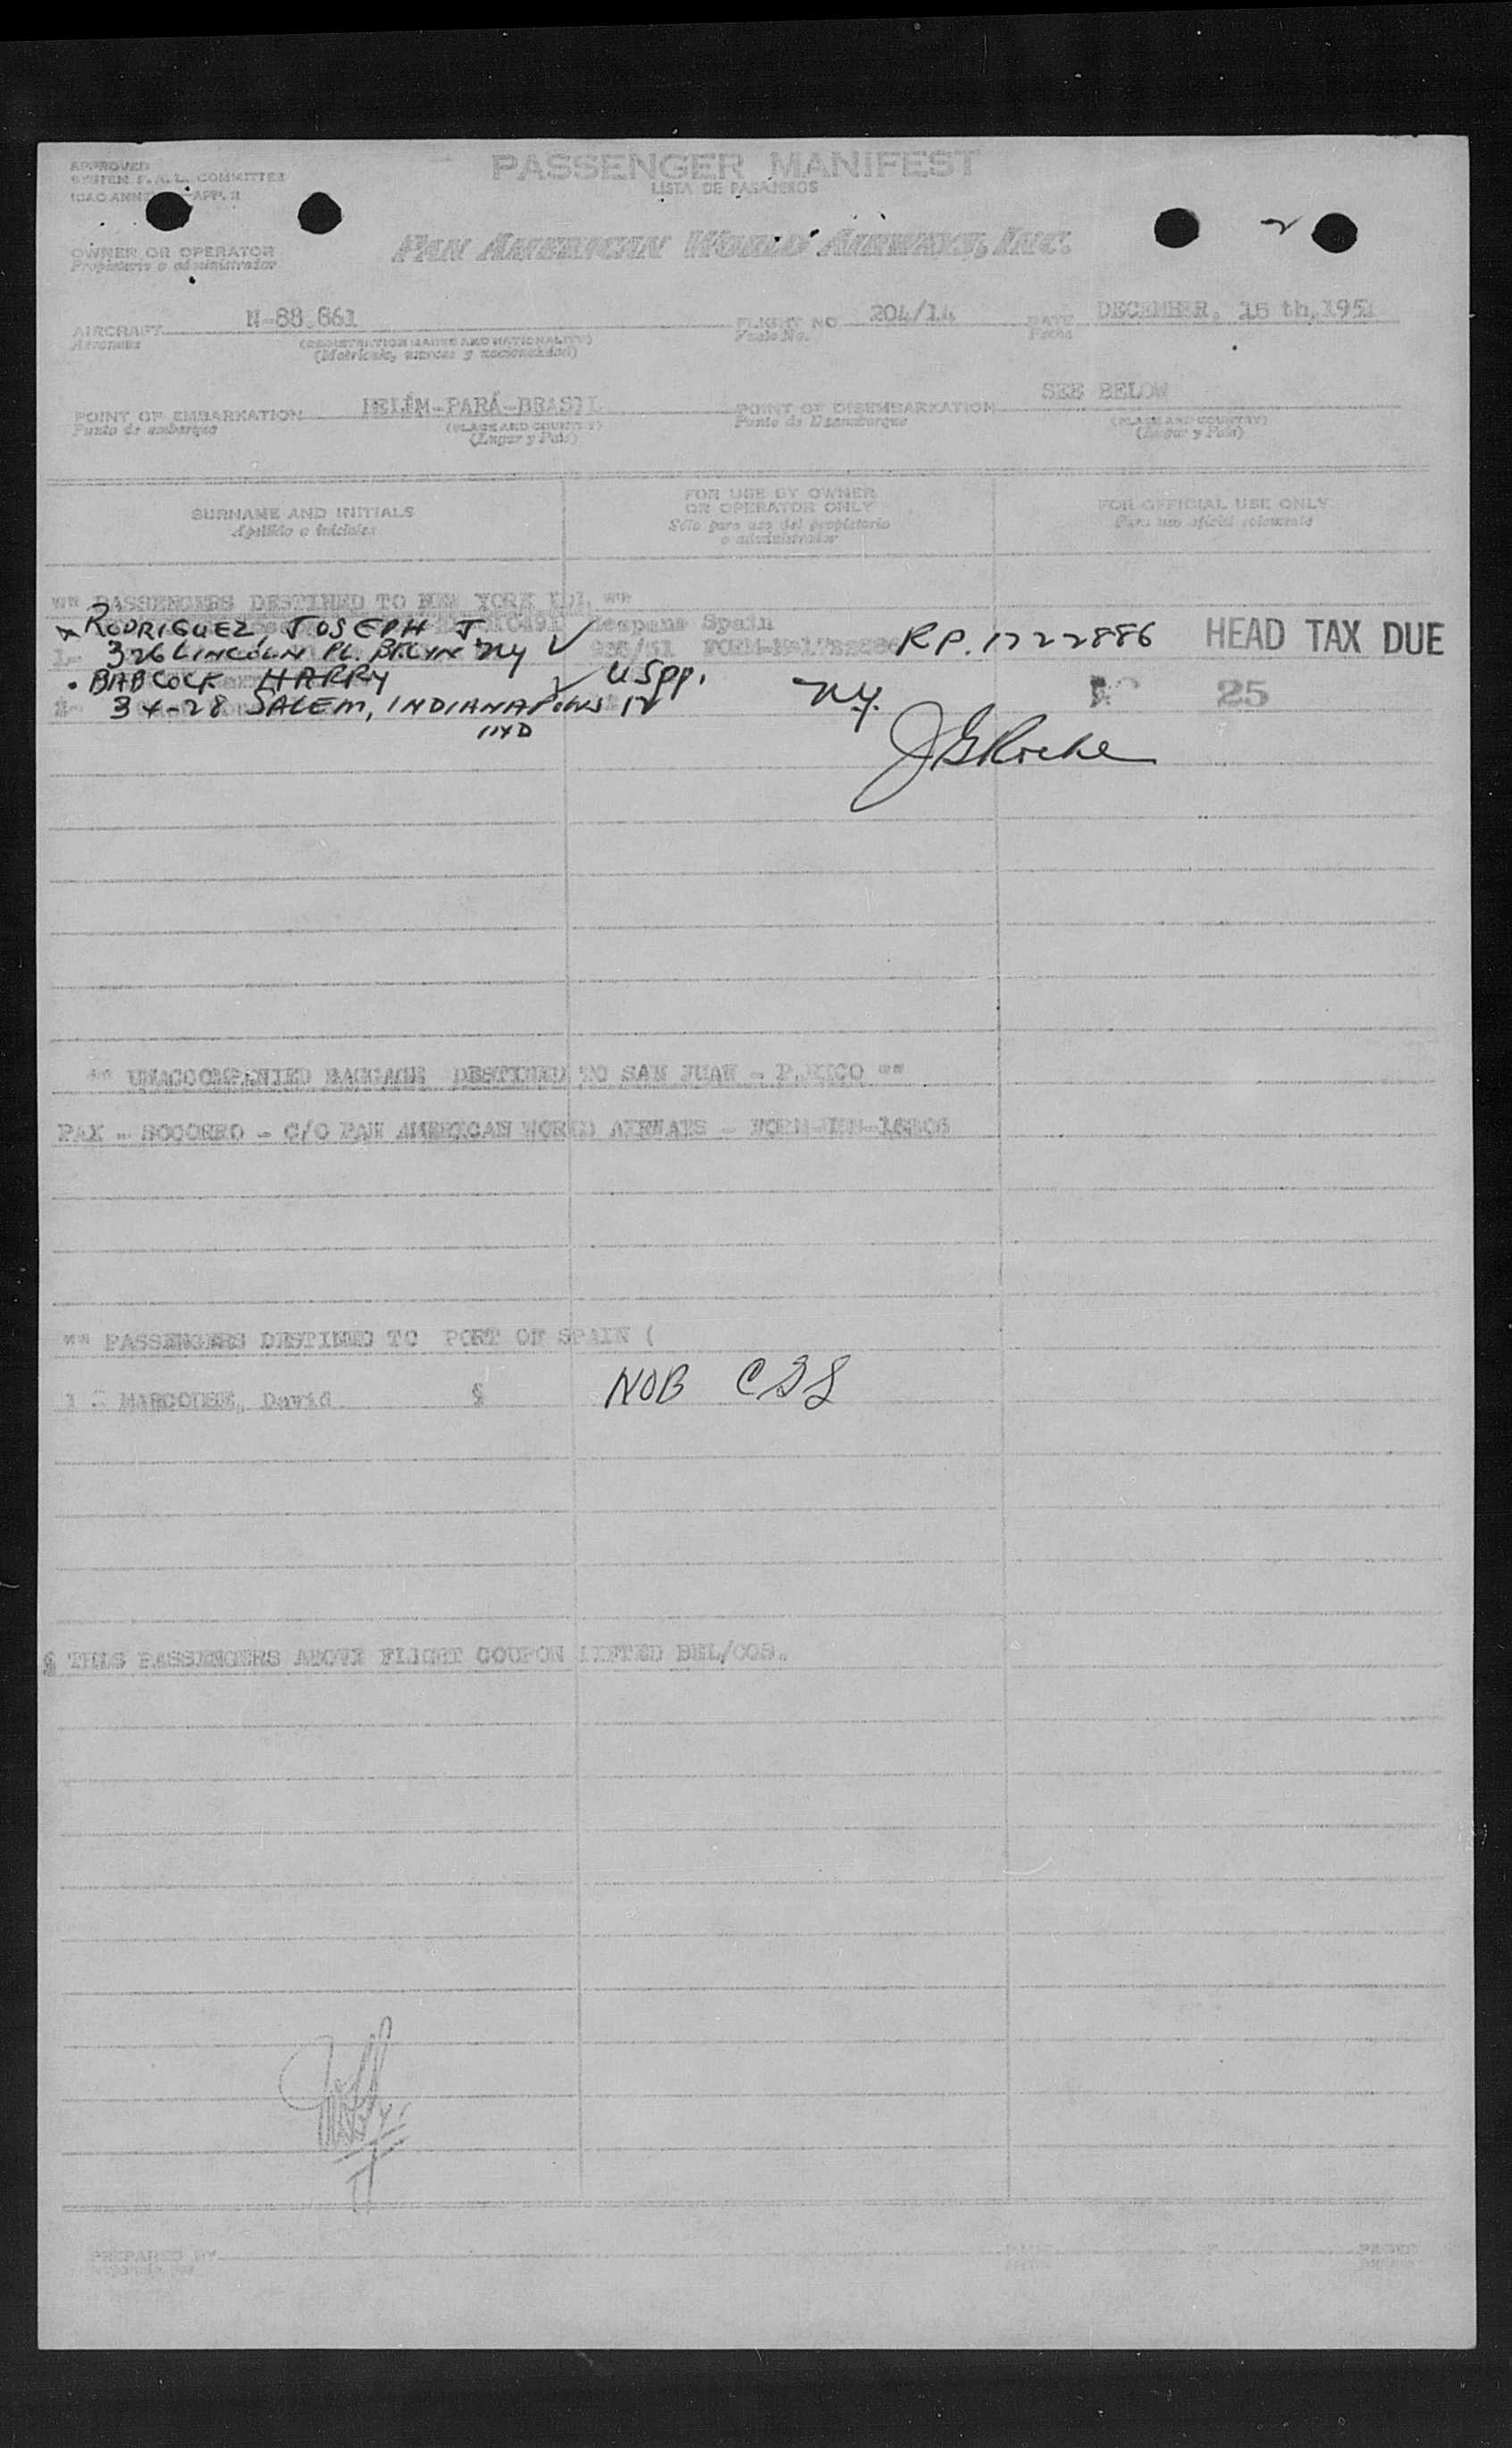 APPROVED
SYSTEM F.A.L. COMMITTEE
ICAO ANNEX -APP. II
PASSENGER MANIFEST
LISTA DE PASAJEROS
OWNER OR OPERATOR
Propietario o administrador
PAN AMERICAN WORLD AIRWAYS, INC.
2
AIRCRAFT N-88.861 FLIGHT NO 204/14 DATE DECEMBER, 15 th, 195
Aeronave (REGISTRATION MARKS AND NATIONALITY) Vuelo No. Fecha
(Matrícula, marcas y nacionalidad)
POINT OF EMBARKATION BELÉM-PARÁ-BRASIL POINT OF DISEMBARKATION SEE BELOW
Punto de embarque (PLACE AND COUNTRY) Punto de Desembarque (PLACE AND COUNTRY)
(Lugar y País) (Lugar y País)
SURNAME AND INITIALS
Apellido e iniciales
FOR USE BY OWNER
OR OPERATOR ONLY
Sólo para uso del propietario
o administrador
FOR OFFICIAL USE ONLY
Para uso oficial solamente
"" PASSENGERS DESTINED TO NEW YORK "" 
RODRIGUEZ, JOSEPH J. Spain RP. 1722886 HEAD TAX DUE
1- 326 LINCOLN PL. BKLYN NY
BABCOCK HARRY USPP. N.Y. 25
2- 34-28 SALEM, INDIANAPOLIS IV
IND
JGRoche
"" UNACCOMPANIED BAGGAGE DESTINED TO SAN JUAN - P.RICO ""
PAX - SOCORRO - C/O PAN AMERICAN WORLD AIRWAYS -
"" PASSENGERS DESTINED TO PORT OF SPAIN (
1 - David § NOB
§ THIS PASSENGERS ABOVE FLIGHT COUPON LIFTED BEL/
PREPARED BY
PAGES